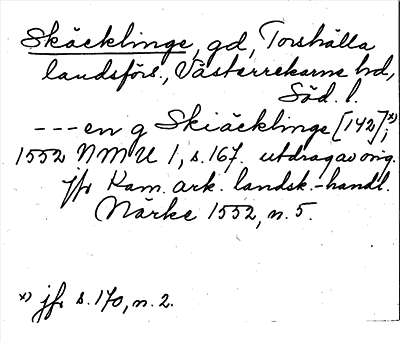 Skäcklinge, gd, Torshälla
landsförs., Västerrekarne hd,
Söd. l.
--- en g Skiäcklinge [142]x);
1552 NMU 1, s. 167. utdrag av orig.
jfr Kam. ark. landsk.-handl.
Närke 1552, n. 5.
x) jfr s. 170, n. 2.